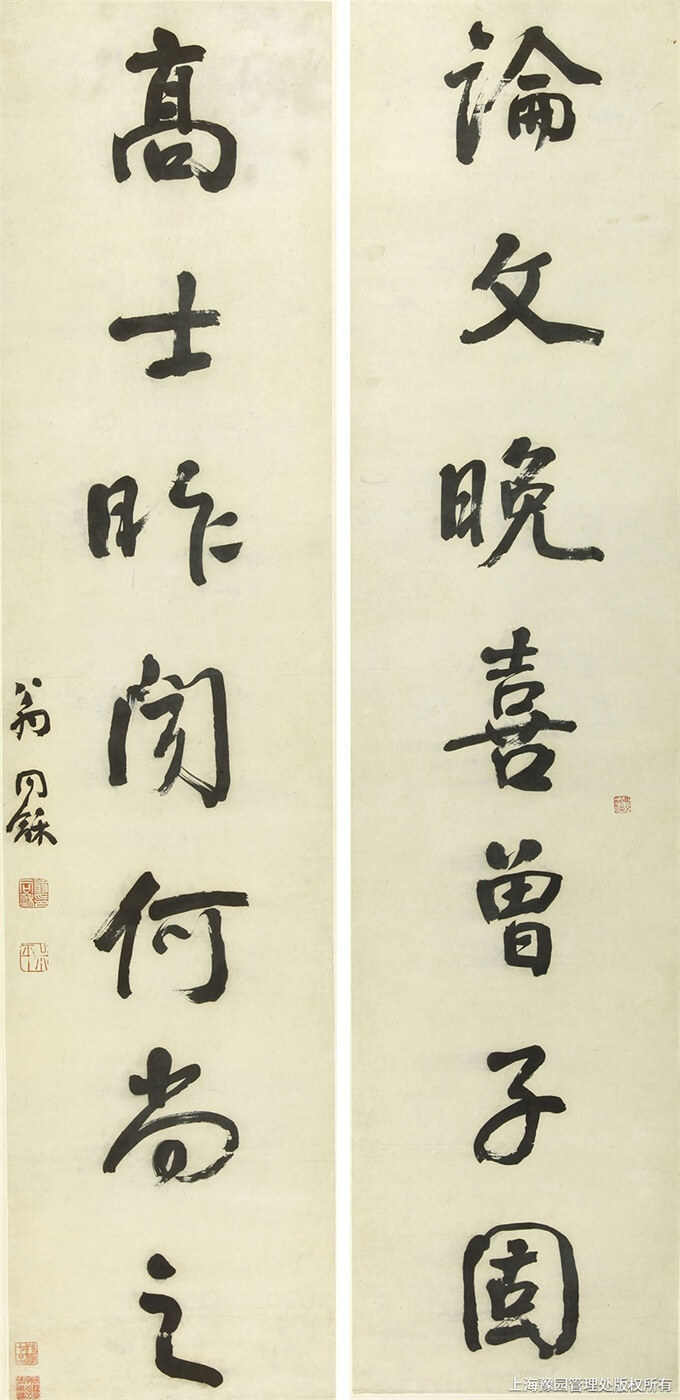 論文晚喜曾子固
高士昨聞何尚之
翁同龢
上海豫园管理处版权所有